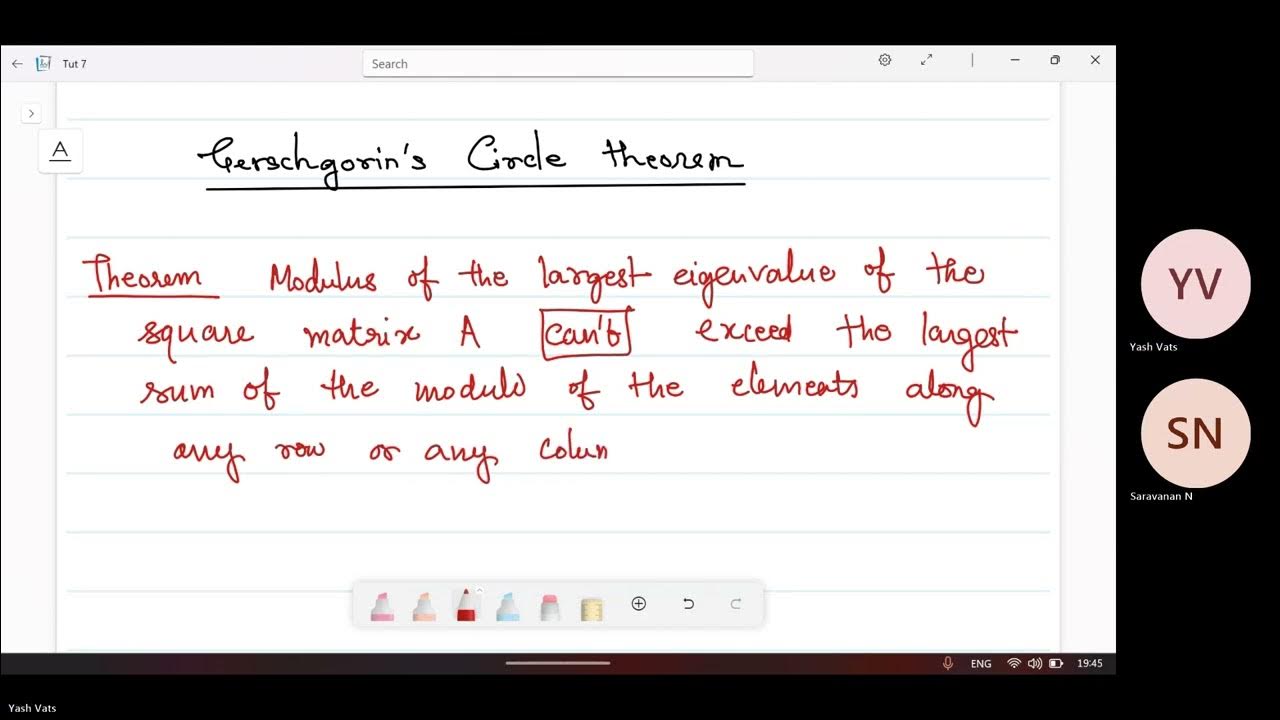 Tut 7
Search
A
Gerschgorin's Circle theorem
Theorem Modulus of the largest eigenvalue of the
square matrix A can't exceed the largest
sum of the modulo of the elements along
any row or any colum
YV
Yash Vats
SN
Saravanan N
ENG 19:45
Yash Vats